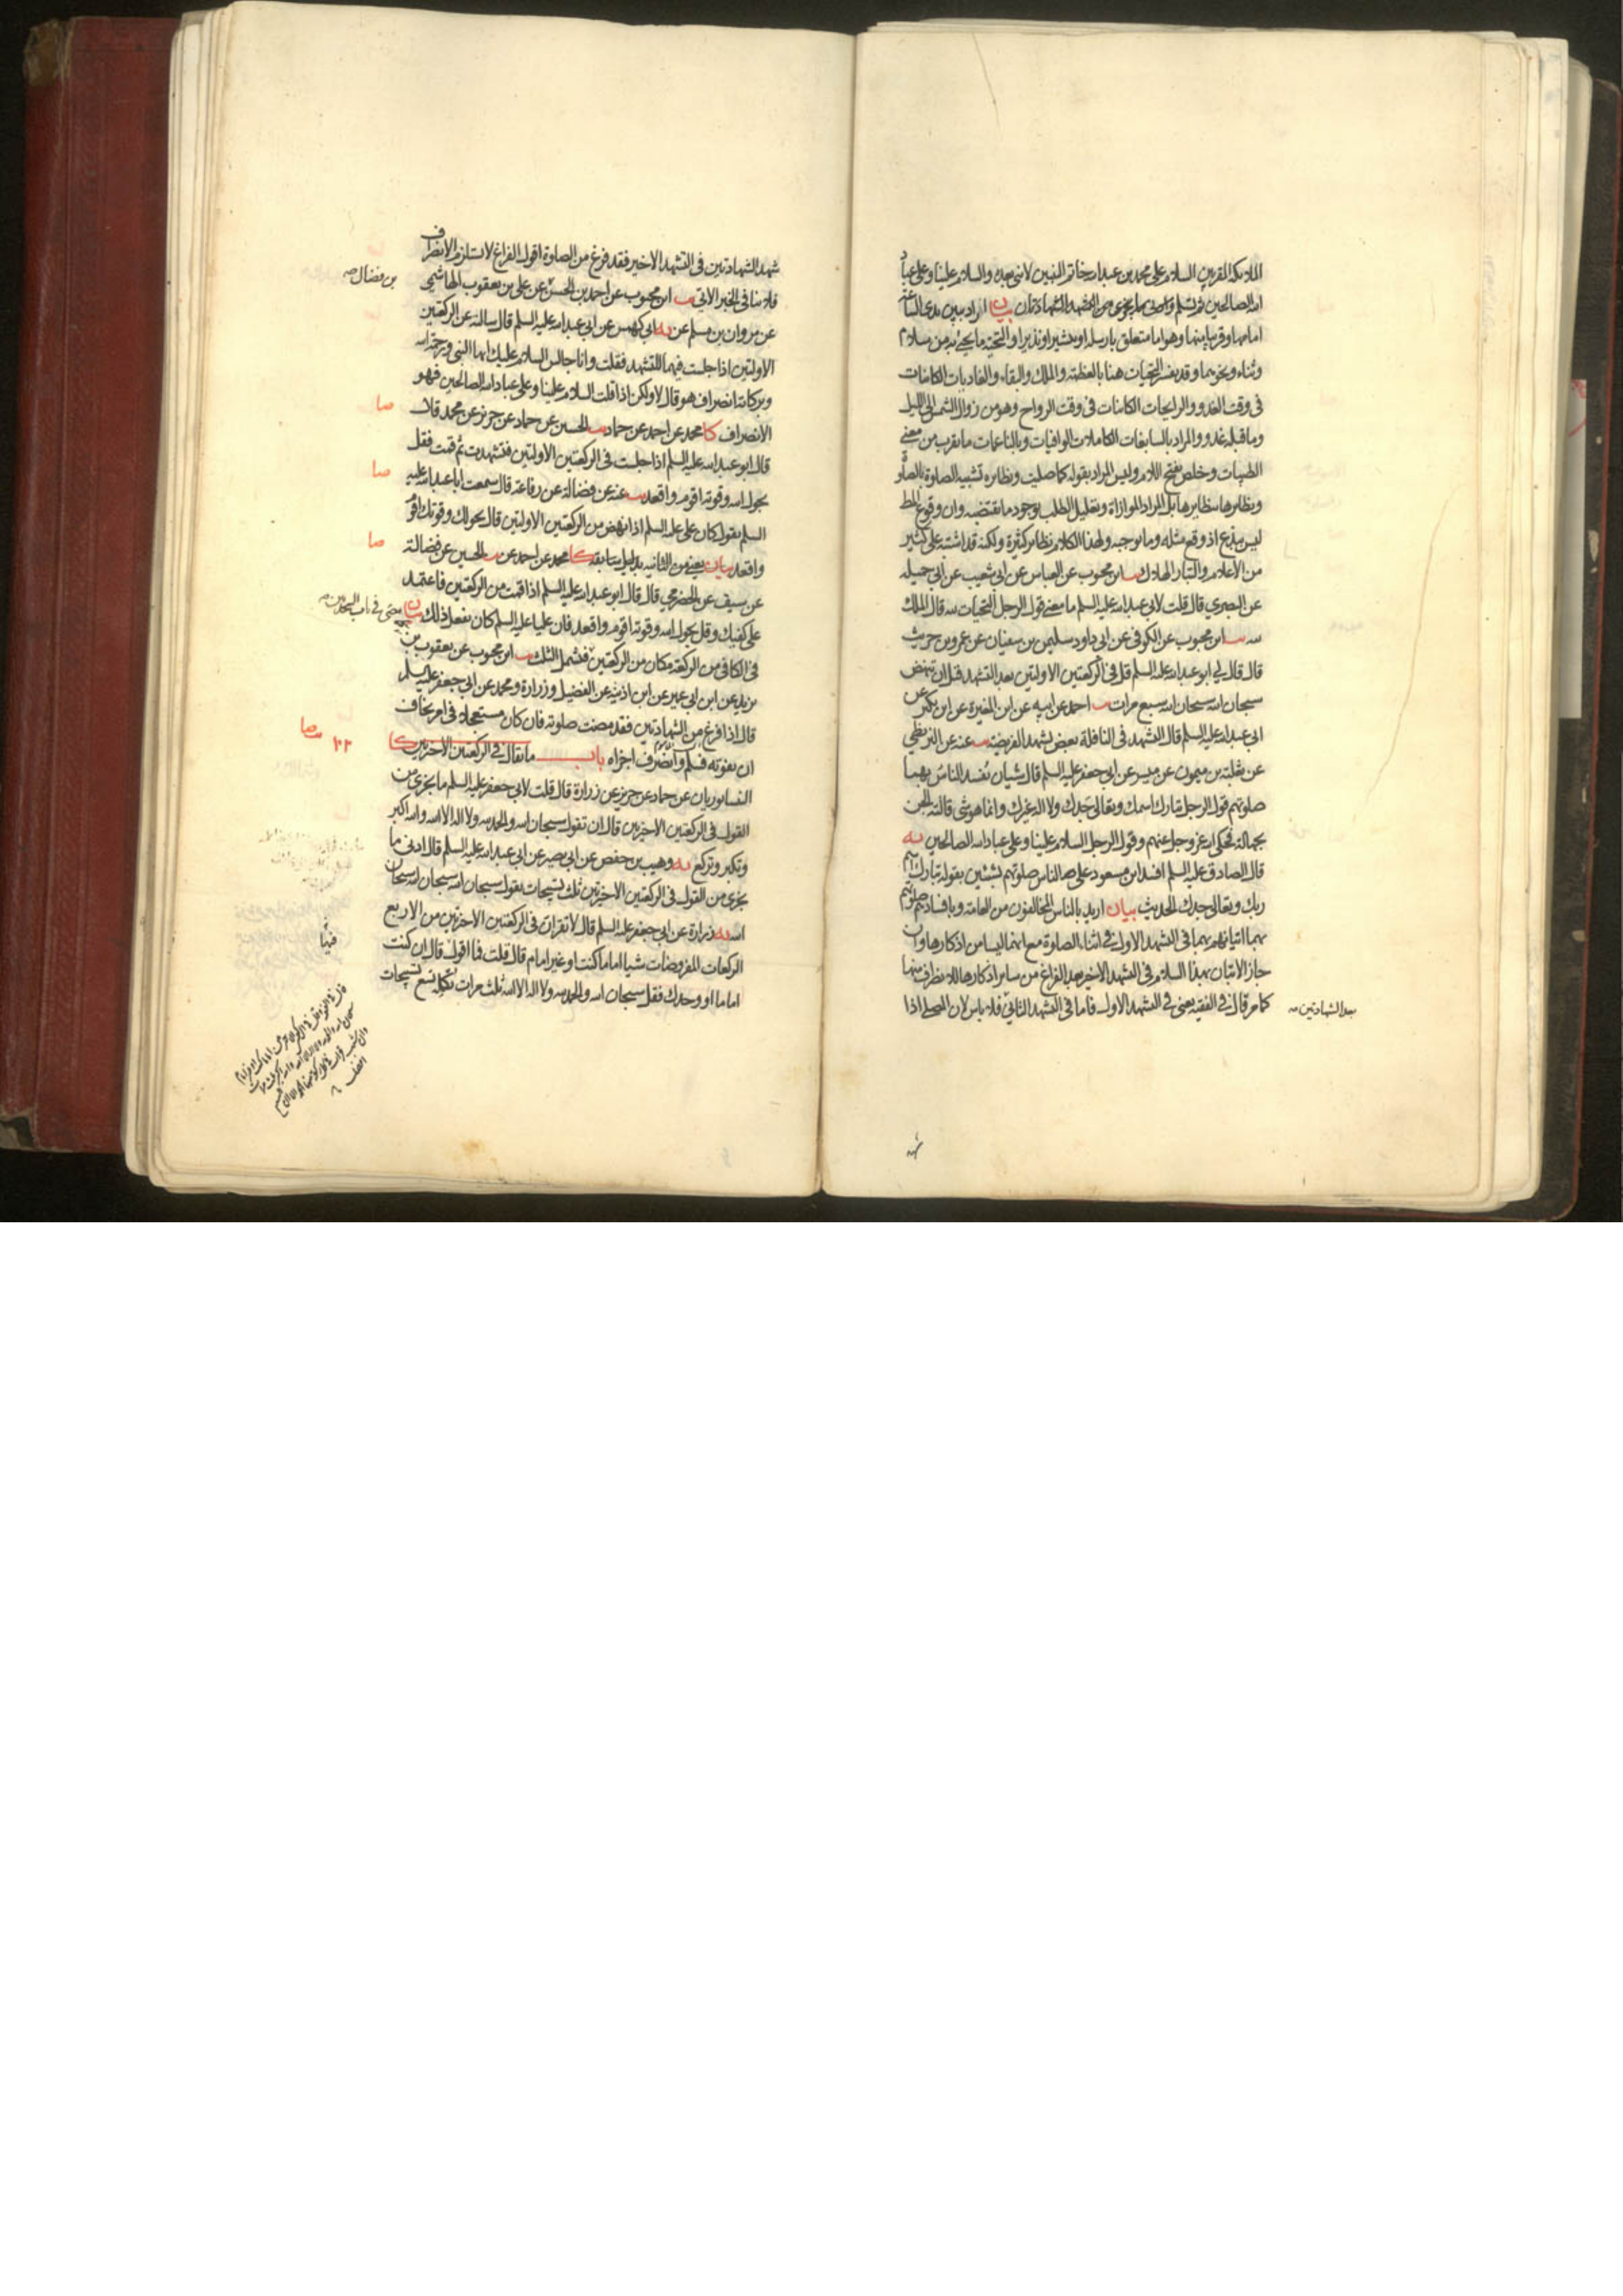 الملائكة المقربين السلام على محمد بن عبد الله خاتم النبيين لا نبي بعده والسلام علينا وعلى عباد
الله الصالحين ثم تسلم وادنى ما يجزى من التشهد الشهادتان بيان اراد ببين يدي الساعة
امامها وقريبا منها وهو اما متعلق بارسله او بشيرا ونذيرا والتحية ما يحيى به من سلام
وثناء ونحوهما وقد يفسر التحيات هنا بالعظمة والملك والبقاء والغاديات الكائنات
في وقت الغدو والرايحات الكائنات في وقت الرواح وهو من زوال الشمس الى الليل
وما قبله غدو والمراد بالسابغات الكاملات الوافيات وبالناعمات ما يقرب من معنى
الطيبات وخلص بفتح اللام وليس المراد بقوله كما صليت ونظايره تشبيه الصلوة بالصلوة
ونظايرها بنظايرها بل المراد الموازاة وتعليل الطلب بوجود ما يقتضيه وان وقوع المط
ليس ببدع اذ وقع مثله وما يوجبه ولهذا الكلام نظاير كثيرة ولكنه قد اشتبه على كثير
من الأعلام والتبار الهلاك يب ابن محبوب عن العباس عن ابي شعيب عن ابي جميلة
عن البصري قال قلت لابي عبد الله عليه السلم ما معنى قول الرجل التحيات لله قال الملك
لله يب ابن محبوب عن الكوفي عن ابي داود سليمن بن سفيان عن عمرو بن حريث
قال قال لي ابو عبد الله عليه السلم قل في الركعتين الاولتين بعد التشهد قبل ان تنهض
سبحان الله سبحان الله سبع مرات يب احمد عن ابيه عن ابن المغيرة عن ابن بكير عن
ابي عبد الله عليه السلم قال التشهد في النافلة بعض تشهد الفريضة يب عنه عن البزنطي
عن ثعلبة بن ميمون عن ميسر عن ابي جعفر عليه السلم قال شيان تفسد الناس بهما
صلوتهم قول الرجل تبارك اسمك وتعالى جدك ولا اله غيرك وانما هو شئ قالته الجن
بجهالة فحكى الله عز وجل عنهم وقول الرجل السلام علينا وعلى عباد الله الصالحين يه
قال الصادق عليه السلم افسد ابن مسعود على الناس صلوتهم بشيئين بقوله تبارك اسم
ربك وتعالى جدك الحديث بيان اريد بالناس المخالفون من العامة وبافسادهم صلوتهم
بهما اتيانهم بهما في التشهد الاول في اثناء الصلوة مع انهما ليسا من اذكارها وان
جاز الاتيان بهذا السلام في التشهد الاخير بعد الفراغ من ساير اذكارها للانصراف منها
كما مر قال في الفقيه يعني في التشهد الاول فاما في التشهد الثاني فلا باس لان المصلى اذا
بعد الشهادتين صه
شهد
شهد الشهادتين في التشهد الاخير فقد فرغ من الصلوة اقول الفراغ لا يستلزم الانصراف
فلا ينافي الخبر الاتي يب ابن محبوب عن احمد بن الحسن عن علي بن يعقوب الهاشمي
بن فضال صه
عن مروان بن مسلم عن يه ابي كهمس عن ابي عبد الله عليه السلم قال سالته عن الركعتين
الاولتين اذا جلست فيهما للتشهد فقلت وانا جالس السلام عليك ايها النبي ورحمة الله
وبركاته انصراف هو قال لا ولكن اذا قلت السلام علينا وعلى عباد الله الصالحين فهو
الانصراف كا محمد عن احمد عن حماد يب الحسين عن حماد عن حريز عن محمد قال
صا
قال ابو عبد الله عليه السلم اذا جلست في الركعتين الاولتين فتشهدت ثم قمت فقل
بحول الله وقوته اقوم واقعد يب عنه عن فضالة عن رفاعة قال سمعت ابا عبد الله عليه
صا
السلم يقول كان علي عليه السلم اذا نهض من الركعتين الاولتين قال بحولك وقوتك اقوم
واقعد بيان يعني من الثانية بدليل سابقه كا محمد عن احمد عن يب الحسين عن فضالة
صا
عن سيف عن الحضرمي قال قال ابو عبد الله عليه السلم اذا قمت من الركعتين فاعتمد
على كفيك وقل بحول الله وقوته اقوم واقعد فان عليا عليه السلم كان يفعل ذلك بيان
مضى في باب السجدتين صه
في الكافي من الركعة مكان من الركعتين فشمل الثلث يب ابن محبوب عن يعقوب بن
يزيد عن ابن ابي عمير عن ابن اذينة عن الفضيل وزرارة ومحمد عن ابي جعفر عليه السلم
قال اذا فرغ من الشهادتين فقد مضت صلوته فان كان مستعجلا في امر يخاف
ان يفوته فسلم وانصرف اجزاه باب ما يقال في الركعتين الاخرتين كا
النيسابوريان عن حماد عن حريز عن زرارة قال قلت لابي جعفر عليه السلم ما يجزى من
القول في الركعتين الاخرتين قال ان تقول سبحان الله والحمد لله ولا اله الا الله والله اكبر
وتكبر وتركع يه وهيب بن حفص عن ابي بصير عن ابي عبد الله عليه السلم قال ادنى ما
يجزى من القول في الركعتين الاخرتين ثلث تسبيحات يقول سبحان الله سبحان الله سبحان
الله يه زرارة عن ابي جعفر عليه السلم قال لا تقران في الركعتين الاخرتين من الاربع
الركعات المفروضات شيا اماما كنت او غير امام قال قلت فما اقول قال ان كنت
اماما او وحدك فقل سبحان الله والحمد لله ولا اله الا الله ثلث مرات تكمله تسع تسبيحات